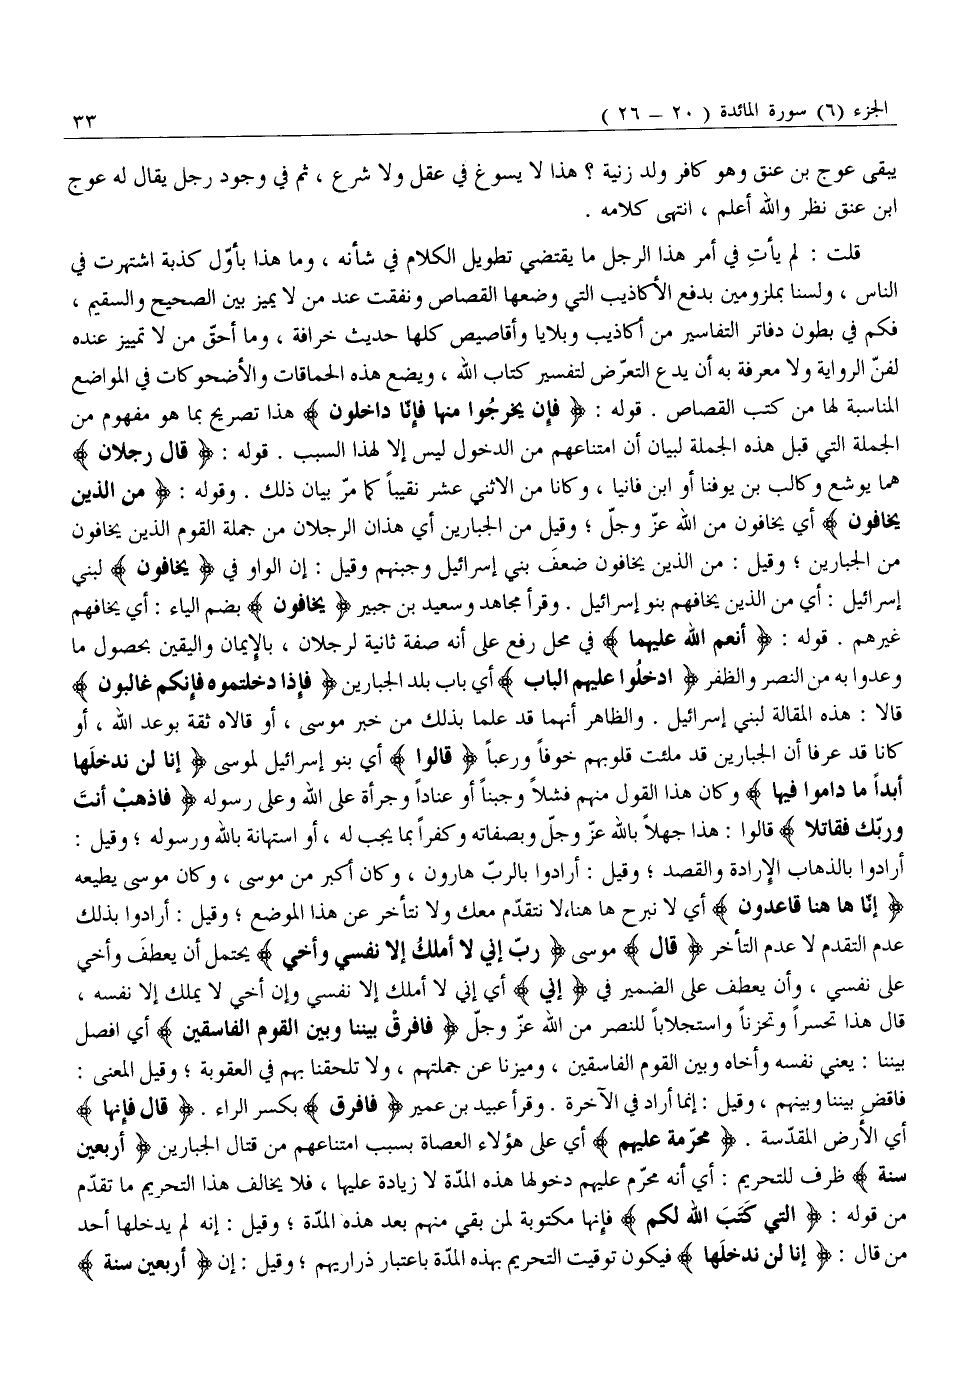 الجزء (٦) سورة المائدة ( ٢٠ – ٢٦ ) ٣٣
يبقى عوج بن عنق وهو كافر ولد زنية ؟ هذا لا يسوغ في عقل ولا شرع ، ثم في وجود رجل يقال له عوج
ابن عنق نظر والله أعلم ، انتهى كلامه .
قلت : لم يأتِ في أمر هذا الرجل ما يقتضي تطويل الكلام في شأنه ، وما هذا بأوّل كذبة اشتهرت في
الناس ، ولسنا بملزومين بدفع الأكاذيب التي وضعها القصاص ونفقت عند من لا يميز بين الصحيح والسقيم ،
فكم في بطون دفاتر التفاسير من أكاذيب وبلايا وأقاصيص كلها حديث خرافة ، وما أحقّ من لا تمييز عنده
لفنّ الرواية ولا معرفة به أن يدع التعرّض لتفسير كتاب الله ، ويضع هذه الحماقات والأضحوكات في المواضع
المناسبة لها من كتب القصاص . قوله : ﴿ فإن يخرجُوا منها فإنّا داخلون ﴾ هذا تصريح بما هو مفهوم من
الجملة التي قبل هذه الجملة لبيان أن امتناعهم من الدخول ليس إلا لهذا السبب . قوله : ﴿ قال رجلان ﴾
هما يوشع وكالب بن يوفنا أو ابن فانيا ، وكانا من الاثني عشر نقيباً كما مرّ بيان ذلك . وقوله : ﴿ من الذين
يخافون ﴾ أي يخافون من الله عزّ وجلّ ؛ وقيل من الجبارين أي هذان الرجلان من جملة القوم الذين يخافون
من الجبارين ؛ وقيل : من الذين يخافون ضعفَ بني إسرائيل وجبنهم وقيل : إن الواو في ﴿ يخافون ﴾ لبني
إسرائيل : أي من الذين يخافهم بنو إسرائيل . وقرأ مجاهد وسعيد بن جبير ﴿ يخافون ﴾ بضم الياء : أي يخافهم
غيرهم . قوله : ﴿ أنعم الله عليهما ﴾ في محل رفع على أنه صفة ثانية لرجلان ، بالإيمان واليقين بحصول ما
وعدوا به من النصر والظفر ﴿ ادخلُوا عليهم الباب ﴾ أي باب بلد الجبارين ﴿ فإذا دخلتموه فإنكم غالبون ﴾
قالا : هذه المقالة لبني إسرائيل . والظاهر أنهما قد علما بذلك من خبر موسى ، أو قالاه ثقة بوعد الله ، أو
كانا قد عرفا أن الجبارين قد ملئت قلوبهم خوفاً ورعباً ﴿ قالوا ﴾ أي بنو إسرائيل لموسى ﴿ إنا لن ندخلَها
أبداً ما داموا فيها ﴾ وكان هذا القول منهم فشلاً وجبناً أو عناداً وجرأة على الله وعلى رسوله ﴿ فاذهبْ أنتَ
وربّك فقاتلا ﴾ قالوا : هذا جهلاً بالله عزّ وجلّ وبصفاته وكفراً بما يجب له ، أو استهانة بالله ورسوله ؛ وقيل :
أرادوا بالذهاب الإرادة والقصد ؛ وقيل : أرادوا بالربّ هارون ، وكان أكبر من موسى ، وكان موسى يطيعه
﴿ إنّا ها هنا قاعدون ﴾ أي لا نبرح ها هنا، لا نتقدّم معك ولا نتأخر عن هذا الموضع ؛ وقيل : أرادوا بذلك
عدم التقدم لا عدم التأخر ﴿ قال ﴾ موسى ﴿ ربّ إني لا أملكُ إلا نفسي وأخي ﴾ يحتمل أن يعطفَ وأخي
على نفسي ، وأن يعطف على الضمير في ﴿ إني ﴾ أي إني لا أملك إلا نفسي وإن أخي لا يملك إلا نفسه ،
قال هذا تحسراً وتحزناً واستجلاباً للنصر من الله عزّ وجلّ ﴿ فافرقْ بيننا وبين القوم الفاسقين ﴾ أي افصل
بيننا : يعني نفسه وأخاه وبين القوم الفاسقين ، وميزنا عن جملتهم ، ولا تلحقنا بهم في العقوبة ؛ وقيل المعنى :
فاقض بيننا وبينهم ، وقيل : إنما أراد في الآخرة . وقرأ عبيد بن عمير ﴿ فافرق ﴾ بكسر الراء . ﴿ قال فإنها ﴾
أي الأرض المقدّسة . ﴿ محرّمة عليهم ﴾ أي على هؤلاء العصاة بسبب امتناعهم من قتال الجبارين ﴿ أربعين
سنة ﴾ ظرف للتحريم : أي أنه محرّم عليهم دخولها هذه المدّة لا زيادة عليها ، فلا يخالف هذا التحريم ما تقدّم
من قوله : ﴿ التي كَتَبَ الله لكم ﴾ فإنها مكتوبة لمن بقي منهم بعد هذه المدّة ؛ وقيل : إنه لم يدخلها أحد
من قال : ﴿ إنا لن ندخلَها ﴾ فيكون توقيت التحريم بهذه المدّة باعتبار ذراريهم ؛ وقيل : إن ﴿ أربعين سنة ﴾